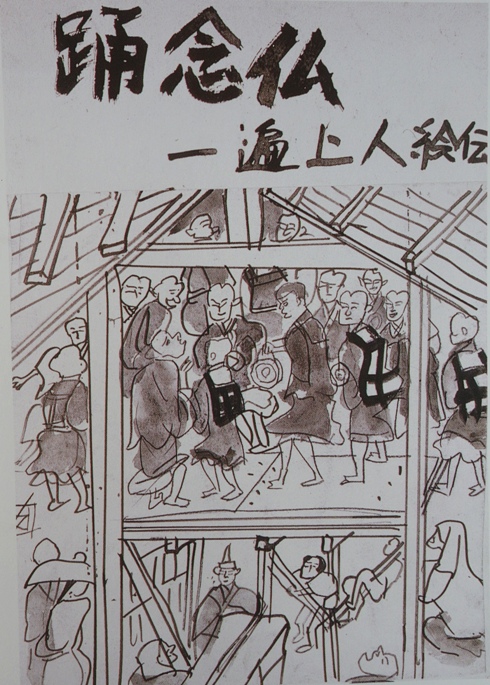 踊念仏
一遍上人絵伝